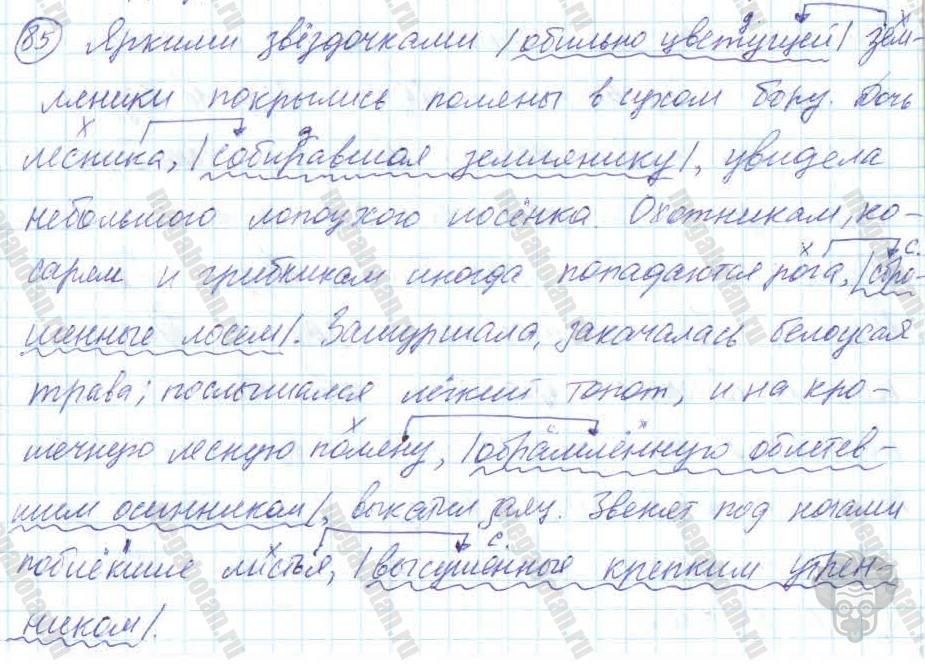 85 Яркими звёздочками |обильно цветущей| зем-
ляники покрылись поляны в сухом бору. Дочь
лесника, |собиравшая землянику|, увидела
небольшого лопоухого лосёнка. Охотникам, ко-
сарям и грибникам иногда попадаются рога, |сбро-
шенные лосем|. Зашуршала, закачалась белоусая
трава; послышался лёгкий топот, и на кро-
шечную лесную поляну, |обрамлённую облетев-
шим осинником|, выкатил заяц. Звенят под ногами
поблёкшие листья, |высушенные крепким утрен-
ником|.